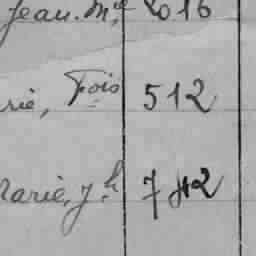 Jean. Mie 2016
rie, Fois 512
Marie, Jh 742